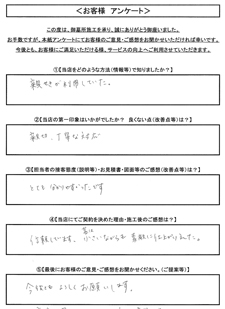 ＜お客様 アンケート＞
この度は、御墓所施工を承り、誠にありがとう御座いました。
お手数ですが、本紙アンケートにてお客様のご意見・ご感想をお聞かせいただければ幸いです。
今後とも、お客様にご満足いただける様、サービスの向上へご利用させていただきます。
①【当店をどのような方法（情報等）で知りましたか？】
親せきが利用していた。
②【当店の第一印象はいかがでしたか？ 良くない点（改善点等）は？】
親切、丁寧な対応
③【担当者の接客態度（説明等）・お見積書・図面等のご感想（改善点等）は？】
とても分かりやすかったです
④【当店にてご契約を決めた理由・施工後のご感想は？】
小さいながらも素敵に仕上がりました。
⑤【最後にお客様のご意見・ご感想をお聞かせください。（ご提案等）】
今後ともよろしくお願いします。